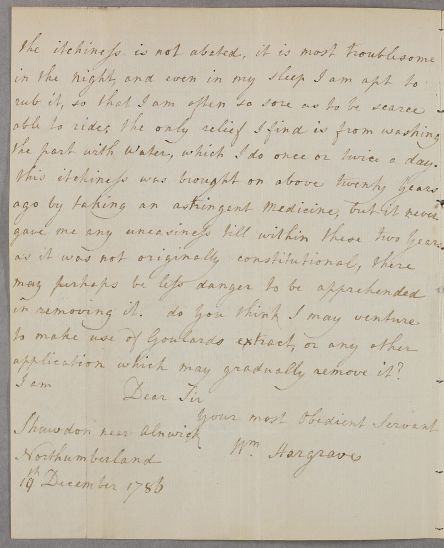 the itchiness is not abated, it is most troublesome
in the night, and even in my sleep I am apt to
rub it, so that I am often so sore as to be scarce
able to ride; the only relief I find is from washing
the part with water, which I do once or twice a day.
this itchiness was brought on above twenty years
ago by taking an astringent medicine, but it never
gave me any uneasiness till within these two years
as it was not originally constitutional, there
may perhaps be less danger to be apprehended
in removing it. do you think I may venture
to make use of Goulards extract, or any other
application which may gradually remove it?
I am
Dear Sir
your most Obedient Servant
Wm Hargrave
Shawdon near Alnwick
Northumberland
19th December 1786